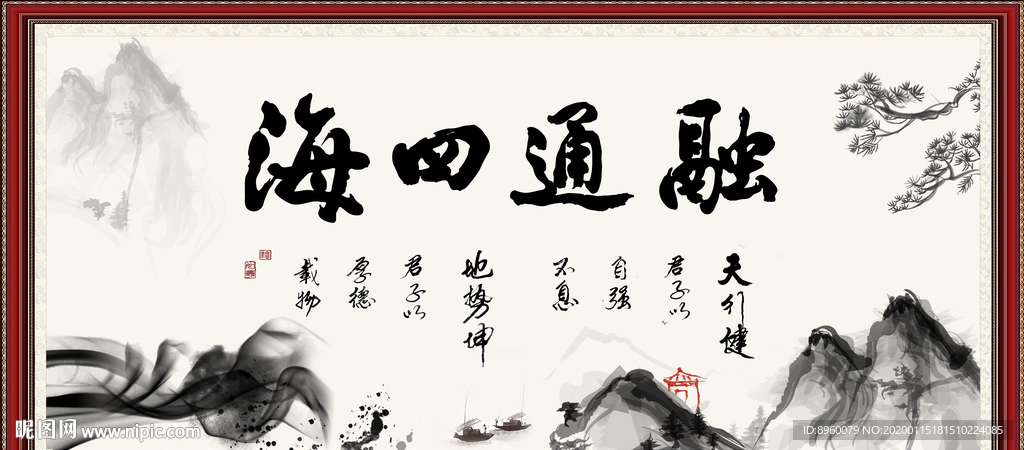 融通四海
天行健
君子以
自强
不息
地势坤
君子以
厚德
载物
昵图网 www.nipic.com
ID:8960079 NO:20200115181510224085